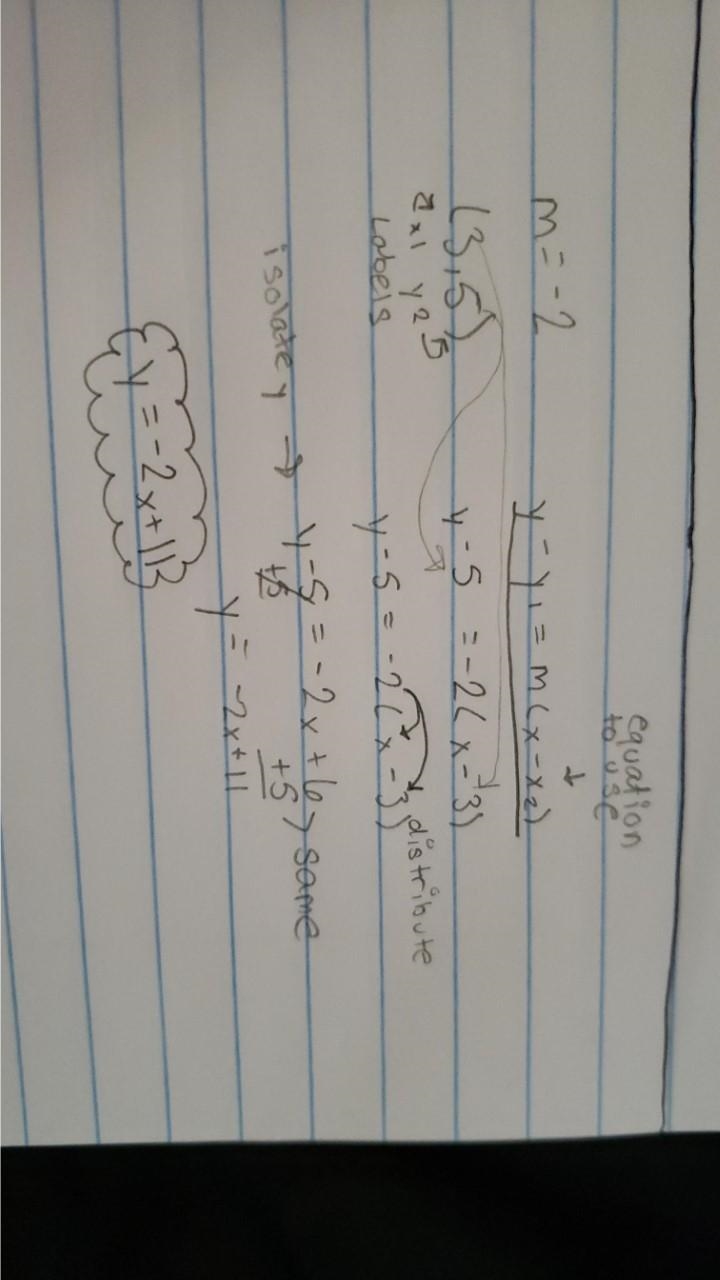 equation
to use
↓
m = -2
y - y₁ = m(x - x₂)
(3,5)
x1 y2 5
Labels
y - 5 = -2(x - 3)
y - 5 = -2(x - 3) distribute
isolate y → y - 5 = -2x + 6 > same
+5 +5
y = -2x + 11
y = -2x + 11